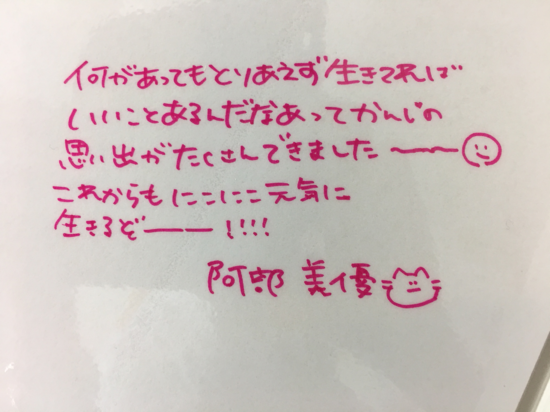 何があってもとりあえず生きてれば
いいことあるんだなあってかんじの
思い出がたくさんできました〜〜
これからもにこにこ元気に
生きるぞー！!!!
阿部 美優